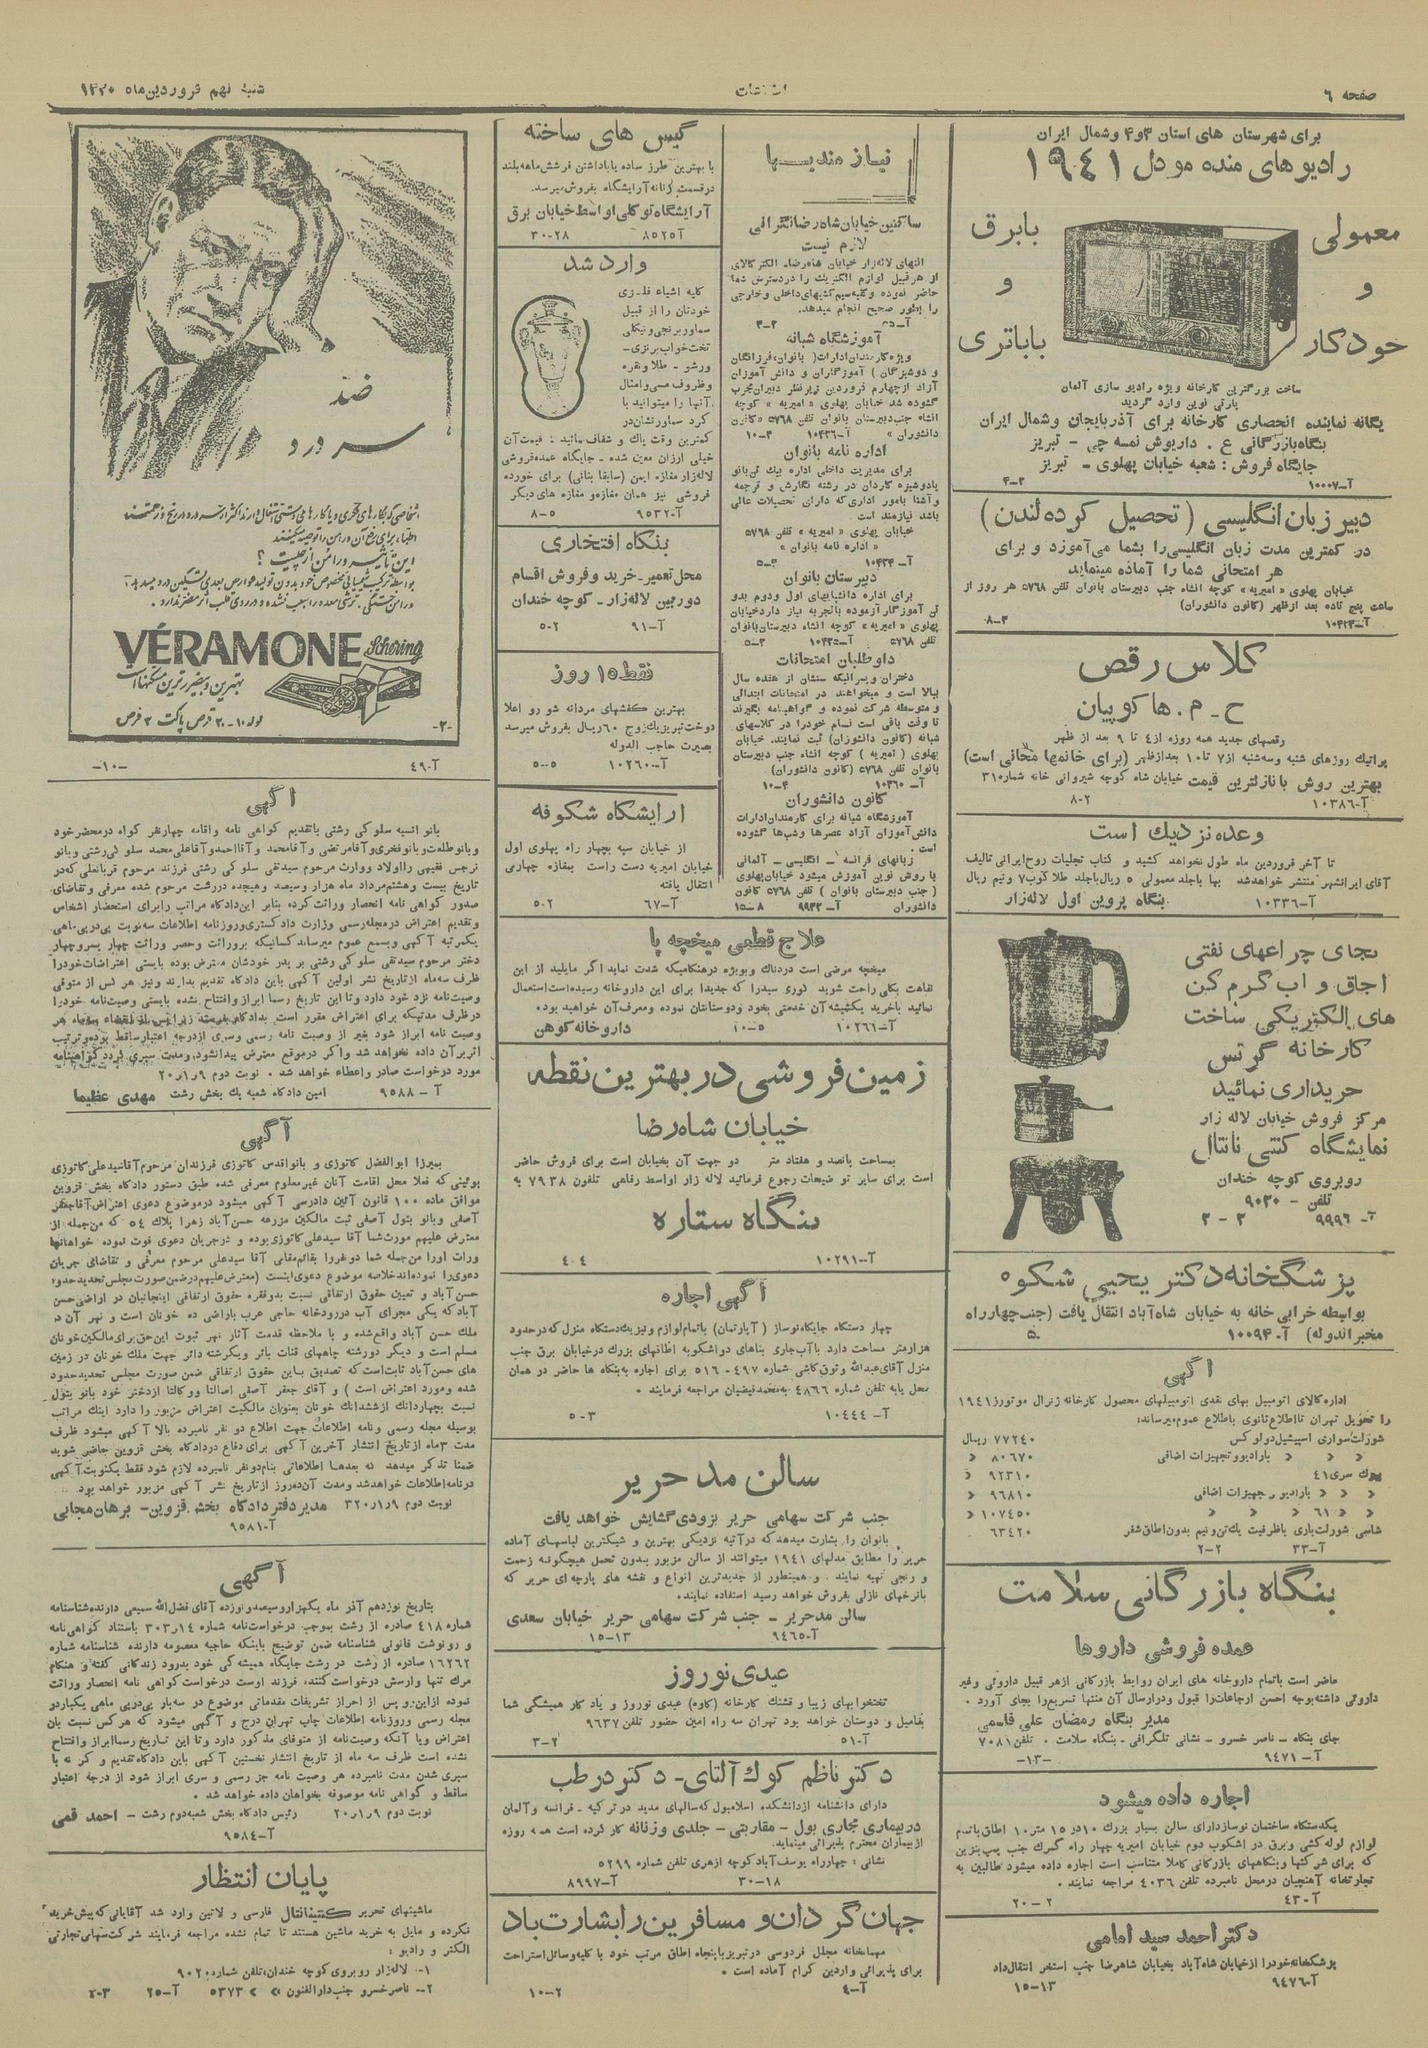 صفحه ۶
اطلاعات
شنبه نهم فروردین‌ماه ۱۳۲۰
برای شهرستان های استان ۳و۴ وشمال ایران
رادیوهای منده مودل ۱۹۴۱
معمولی
و
خودکار
بابرق
و
باباتری
ساخت بزرگترین کارخانه ویژه رادیو سازی آلمان
پارتی نوین وارد گردید
یگانه نماینده انحصاری کارخانه برای آذربایجان وشمال ایران
بنگاه‌بازرگانی ع . داریوش نمسه چی - تبریز
جایگاه فروش : شعبه خیابان پهلوی - تبریز
آ-۱۰۰۰۷ ۲-۴
دبیر زبان انگلیسی ( تحصیل کرده لندن )
در کمترین مدت زبان انگلیسی را بشما می‌آموزد و برای
هر امتحانی شما را آماده مینماید
خیابان پهلوی «امیریه» کوچه انشاء جنب دبیرستان بانوان تلفن ۵۷۶۸ هر روز از
ساعت پنج تاده بعد ازظهر (کانون دانشوران)
آ-۱۰۴۲۳ ۳-۸
کلاس رقص
ح - م . هاکوپیان
رقصهای جدید همه روزه از۴ تا ۹ بعد از ظهر
پراتیک روزهای شنبه وسه‌شنبه از۷ تا۱۰ بعدازظهر (برای خانمها مجانی است)
بهترین روش با نازلترین قیمت خیابان شاه کوچه شیروانی خانه شماره۳۱
آ-۱۰۳۸۶ ۲-۸
وعده نزدیک است
تا آخر فروردین ماه طول نخواهد کشید و کتاب تجلیات روح‌ایرانی تالیف
آقای ایرانشهر منتشر خواهدشد بها باجلد معمولی ۵ ریال‌باجلد طلاکوب۷ ونیم ریال
آ-۱۰۳۳۶ بنگاه پروین اول لاله‌زار
بجای چراغهای نفتی
اجاق و آب گرم کن
های الکتریکی ساخت
کارخانه گرتس
خریداری نمائید
مرکز فروش خیابان لاله زار
نمایشگاه کنتی نانتال
روبروی کوچه خندان
تلفن - ۹۰۲۰
آ-۹۹۹۶ ۲-۳
پزشگخانه دکتر یحیی شکوه
بواسطه خرابی خانه به خیابان شاه‌آباد انتقال یافت (جنب‌چهارراه
مخبرالدوله) آ-۱۰۰۹۴ ۵
آگهی
اداره‌کالای اتومبیل بهای نقدی اتومبیلهای محصول کارخانه ژنرال موتورز۱۹۴۱
را تحویل تهران تااطلاع‌ثانوی باطلاع عموم‌میرساند:
شورلت‌سواری اسپیشیل‌دولوکس ۷۷۲۴۰ ریال
« « « بارادیووتجهیزات اضافی ۸۰۶۷۰ «
بیوک سری۴۱ ۹۲۳۱۰ «
« « « بارادیو و تجهیزات اضافی ۹۶۸۱۰ «
« « ۶۱ « « « ۱۰۷۴۵۰ «
شاسی شورلت‌باری باظرفیت یک‌تن‌ونیم بدون‌اطاق‌شفر ۶۳۴۲۰ «
آ-۳۳ ۲-۲
بنگاه بازرگانی سلامت
عمده فروشی داروها
حاضر است باتمام داروخانه های ایران روابط بازرگانی ازهر قبیل داروئی وغیر
داروئی داشته‌بوجه احسن ارجاعات‌را قبول ودرارسال آن منتها تسریع‌را بجای آورد .
مدیر بنگاه رمضان علی قاسمی
جای بنگاه - ناصر خسرو - نشانی تلگرافی - بنگاه سلامت . تلفن۷۰۸۱
آ-۹۴۷۱ -۱۳-
اجاره داده میشود
یکدستگاه ساختمان نوسازدارای سالن بسیار بزرگ ۱۰در ۱۵ متر۱۰ اطاق‌باتمام
لوازم لوله‌کشی وبرق در اشکوب دوم خیابان امیریه چهار راه گمرک جنب پمپ‌بنزین
که برای شرکتها وبنگاههای بازرگانی کاملا متناسب است اجاره داده میشود طالبین به
تجارتخانه آهنچیان درمحل نامبرده تلفن ۴۰۳۶ مراجعه نمایند .
آ-۴۳۰ ۲-۲۰
دکتر احمد سید امامی
پزشگخانه‌خودرا ازخیابان شاه‌آباد بخیابان شاهرضا جنب استخر انتقال‌داد
آ-۹۴۷۶ ۱۳-۱۵
نیازمندیها
ساکنین خیابان شاه رضا نگرانی
لازم نیست
از هر قبیل لوازم الکتریک را دردسترس شما
حاضر نموده وکلیه‌سیم‌کشیهای‌داخلی وخارجی
را بطور صحیح انجام میدهد.
آ-۳۵ ۲-۴
آموزشگاه شبانه
ویژه کارمندان‌ادارات( بانوان،فرزانگان
و دوشیزگان ) آموزگاران و دانش آموزان
آزاد ازچهارم فروردین زیرنظر دبیران‌مجرب
گشوده شد خیابان پهلوی « امیریه » کوچه
انشاء جنب‌دبیرستان بانوان تلفن ۵۷۶۸ «کانون
دانشوران » آ-۱۰۴۳۶ ۴-۱۰
اداره نامه بانوان
برای مدیریت داخلی اداره بیک تن‌بانو
یادوشیزه کاردان در رشته نگارش و ترجمه
وآشنا بامور اداری‌که دارای تحصیلات عالی
باشد نیازمند است .
خیابان پهلوی « امیریه » تلفن ۵۷۶۸
« اداره نامه بانوان »
آ-۱۰۴۳۴ ۳-۵
دبیرستان بانوان
برای اداره دانشپایهای اول ودوم بدو
تن آموزگار آزموده باتجربه نیاز داردخیابان
پهلوی « امیریه » کوچه انشاء دبیرستان‌بانوان
تلفن ۵۷۶۸ آ-۱۰۴۳۵ ۳-۵
داوطلبان امتحانات
دختران وپسرانیکه سنشان از هفده سال
ببالا است و میخواهند در امتحانات ابتدائی
و متوسطه شرکت نموده و گواهینامه بگیرند
تا وقت باقی است نام خودرا در کلاسهای
شبانه (کانون دانشوران) ثبت نمایند. خیابان
پهلوی ( امیریه ) کوچه انشاء جنب دبیرستان
بانوان تلفن ۵۷۶۸ (کانون دانشوران)
آ-۱۰۳۶۰ ۴-۱۰
کانون دانشوران
آموزشگاه شبانه برای کارمندان‌ادارات
دانش‌آموزان آزاد عصرها وشبها گشوده
است .
زبانهای فرانسه - انگلیسی - آلمانی
با روش نوین آموزش میشود خیابان‌پهلوی
( جنب دبیرستان بانوان ) تلفن ۵۷۶۸ کانون
دانشوران آ-۹۹۴۳ ۸-۱۵
گیس های ساخته
با بهترین طرز ساده یاباداشتن فرشش‌ماهه‌بلند
درقسمت زنانه‌آرایشگاه بفروش میرسد.
آرایشگاه توکلی اواسط خیابان برق
آ-۸۵۲۵ ۲۸-۳۰
وارد شد
کلیه اشیاء فلزی
خودتان را از قبیل
سماوربرنجی‌ونیکلی
تخت‌خواب‌برنزی-
ورشو - طلا ونقره
وظروف مسی‌وامثال
آنها را میتوانید با
کرد سماورنشان‌در
کمترین وقت پاک و شفاف‌نمائید : قیمت‌آن
خیلی ارزان معین شده - جایگاه عمده‌فروشی
لاله‌زار مغازه ایمن (سابقا بنائی) برای خورده
فروشی نیز همان مغازه‌و مغازه های‌دیگر
آ-۹۵۳۲ ۵-۸
بنگاه افتخاری
محل تعمیر-خرید وفروش اقسام
دوربین لاله‌زار- کوچه خندان
آ-۹۱ ۲-۵
فقط ۱۵ روز
بهترین کفشهای مردانه شو رو اعلا
دوخت‌تبریزیک‌زوج ۶۰ریال بفروش میرسد
بصیرت حاجب الدوله
آ-۱۰۲۶۰ ۵-۵
آرایشگاه شکوفه
از خیابان سپه بچهار راه پهلوی اول
خیابان امیریه دست راست بمغازه چهارمی
انتقال یافته
آ-۶۷ ۲-۵
علاج قطعی میخچه پا
میخچه مرضی است دردناک وبویژه درهنگامیکه شدت نماید اگر مایلید از این
نقاهت بکلی راحت شوید فوری سیدرا که جدیدا برای این داروخانه رسیده‌است‌استعمال
نمائید باخرید یکشیشه‌آن خدمتی بخود ودوستانتان نموده ومعرف‌آن خواهید بود.
آ-۱۰۲۶۱ ۵-۱۰ داروخانه کوهن
زمین‌فروشی در بهترین نقطه
خیابان شاه‌رضا
بمساحت پانصد و هفتاد متر دو جهت آن بخیابان است برای فروش حاضر
است برای سایر تو ضیحات رجوع فرمائید لاله زار اواسط رفاهی تلفون ۷۹۳۸ به
بنگاه ستاره
آ-۱۰۲۹۱ ۴-۴
آگهی اجاره
چهار دستگاه جایگاه‌نوساز ( آپارتمان) باتمام‌لوازم ونیزیک‌دستگاه منزل که‌درحدود
هزارمتر مساحت دارد باآب‌جاری بناهای دواشکوبه اطاقهای بزرگ درخیابان برق جنب
منزل آقای‌عبدالله وثوق‌کاشی شماره ۴۹۷-۵۱۶ برای اجاره به‌بنگاه ها حاضر در همان
محل یابه تلفن شماره ۴۸۶۶ به‌محمدفیضیان مراجعه فرمایند .
آ-۱۰۴۴۴ ۳-۵
سالن مد حریر
جنب شرکت سهامی حریر بزودی گشایش خواهد یافت
بانوان را بشارت میدهد که درآتیه نزدیکی بهترین و شیکترین لباسهای آماده
حریر را مطابق مدلهای ۱۹۴۱ میتوانند از سالن مزبور بدون تحمل هیچگونه زحمت
و رنجی تهیه نمایند . و همینطور از جدیدترین انواع و نقشه های پارچه‌ای حریر که
بانرخهای نازلی بفروش خواهد رسید استفاده نمایند.
سالن مدحریر - جنب شرکت سهامی حریر خیابان سعدی
آ-۹۴۶۵ ۱۳-۱۵
عیدی نوروز
تختخوابهای زیبا و قشنگ کارخانه (کاوه) عیدی نوروز و یاد گار همیشگی شما
بفامیل و دوستان خواهد بود تهران سه راه امین حضور تلفن ۹۶۳۷
آ-۵۱ ۲-۳
دکتر ناظم کوک آلتای- دکتر در طب
دارای دانشنامه ازدانشکده اسلامبول که‌سالهای مدید در ترکیه - فرانسه وآلمان
در بیماری مجاری بول - مقاربتی - جلدی وزنانه کار کرده است همه روزه
ازبیماران محترم پذیرائی مینماید.
نشانی : چهارراه یوسف آباد کوچه ازهری تلفن شماره ۵۲۹۹
آ-۸۹۹۷ ۱۸-۳۰
جهان گردان و مسافرین را بشارت باد
مهمانخانه مجلل فردوسی درتبریز باپنجاه اطاق مرتب خود با کلیه وسائل استراحت
برای پذیرائی واردین کرام آماده است .
آ-۴ ۲-۱۰
ضد
سر درد
این تأثیر ورامن از چیست ؟
VÉRAMONE Schering
بهترین و بیضررترین مسکنهااست
لوله ۱۰-۲۰ قرص پاکت ۲ قرص
-۲-
آ-۴۹ -۱۰-
آگهی
بانو انسیه سلوکی رشتی باتقدیم گواهی نامه واقامه چهارنفر گواه درمحضرخود
وبانوطلعت‌وبانوفخری‌وآقامرتضی وآقامحمد وآقااحمدوآقاعلی‌محمد سلوکی‌رشتی وبانو
نرجس فقیهی رااولاد ووارث مرحوم سیدتقی سلوکی رشتی فرزند مرحوم قربانعلی که‌در
تاریخ بیست وهشتم‌مرداد ماه هزار وسیصد وهیجده دررشت مرحوم شده معرفی وتقاضای
صدور گواهی نامه انحصار وراثت‌کرده بنابر این‌دادگاه مراتب رابرای استحضار اشخاص
وتقدیم اعتراض درمجله‌رسمی وزارت دادگستری‌وروزنامه اطلاعات سه‌نوبت پی‌درپی‌ماهی
یکمرتبه آگهی وبسمع عموم میرساند کسانیکه بروراثت وحصر وراثت چهار پسروچهار
دختر مرحوم سیدتقی سلوکی رشتی بر پدر خودشان معترض‌بوده بایستی اعتراضات‌خودرا
ظرف سه‌ماه ازتاریخ نشر اولین آگهی باین دادگاه تقدیم بدارند ونیز هر کس از متوفی
وصیت‌نامه نزد خود دارد وتا این تاریخ رسما ابراز وافتتاح نشده بایستی وصیت‌نامه خودرا
اثربرآن داده نخواهد شد واگر درموقع معترض پیدانشود، ومدت سپری گردد گواهینامه
مورد درخواست صادر واعطاء خواهد شد . نوبت دوم ۲۰ر۱ر۹
آ-۹۵۸۸ امین دادگاه شعبه یک بخش رشت مهدی عظیما
آگهی
بمیرزا ابوالفضل کانوزی و بانواقدس کانوزی فرزندان مرحوم آقاسیدعلی‌کانوزی
بوئینی‌که فعلا محل اقامت آنان غیرمعلوم معرفی شده طبق دستور دادگاه بخش قزوین
موافق ماده ۱۰۰ قانون آئین دادرسی آگهی میشود درموضوع دعوی اعتراض‌آقاجعفر
آصفی وبانو بتول آصفی ثبت مالکین مزرعه حسن‌آباد زهرا پلاک ۵۴ که من‌جمله از
معترض علیهم مورث‌شما آقا سیدعلی کانوزی‌بوده و درجریان دعوی فوت نموده خواهانها
وراث اورا من‌جمله شما دونفررا بقائم‌مقامی آقا سیدعلی مرحوم معرفی و تقاضای جریان
دعوی‌را نموده‌اند خلاصه موضوع دعوی‌اینست (معترض‌علیهم‌درضمن‌صورت مجلس‌تحدیدحدود
حسن‌آباد و تعیین حقوق ارتفاقی نسبت بدوفقره حقوق ارتفاقی اینجانبان در اراضی‌حسن
آبادکه یکی مجرای آب دررودخانه حاجی عرب باراضی ده خونان است و نهر آن در
ملک حسن آباد واقع‌شده و با ملاحظه قدمت آثار نهر ثبوت این‌حق‌برای‌مالکین‌خونان
مسلم است و دیگر دورشته چاههای قنات بائر ویکرشته دائر جهت ملک خونان در زمین
های حسن‌آباد ثابت‌است‌که تصدیق باین حقوق ارتفاقی ضمن صورت مجلس تحدیدحدود
شده ومورد اعتراض است ) و آقای جعفر آصفی اصالتا ووکالتا ازدختر خود بانو بتول
نسبت بچهاردانک ازششدانک خونان بعنوان مالکیت اعتراض مزبور را دارد اینک مراتب
بوسیله مجله رسمی و نامه اطلاعات جهت اطلاع دو نفر نامبرده بالا آگهی میشود ظرف
مدت ۳ماه ازتاریخ انتشار آخرین آگهی برای دفاع دردادگاه بخش قزوین حاضر شوید
ضمنا تذکر میدهد که بعدها اطلاعاتی بنام‌دونفر نامبرده لازم شود فقط یکنوبت‌آگهی
درنامه‌اطلاعات خواهدشد ومدت آن‌ده‌روز ازتاریخ نشر آگهی مزبور خواهد بود.
نوبت دوم ۳۲۰ر۱ر۹ مدیر دفتر دادگاه بخش قزوین- برهان مجابی
آ-۹۵۸۱
آگهی
بتاریخ نوزدهم آذر ماه یکهزاروسیصدونوزده آقای فضل‌الله سمیعی دارنده‌شناسنامه
شماره ۴۱۸ صادره از رشت بموجب درخواست‌نامه شماره ۱۴ر۳۰۳ باستناد گواهی‌نامه
و رونوشت قانونی شناسنامه ضمن توضیح باینکه حاجیه معصومه دارنده شناسنامه شماره
۱۶۲۶۲ صادره از رشت در رشت جایگاه همیشه‌گی خود بدرود زندگانی گفته و هنگام
مرک تنها وارثش درخواست‌کننده، فرزند اوست درخواست‌گواهی نامه انحصار وراثت
نموده ازاین‌رو پس از احراز تشریفات مقدماتی موضوع در سه‌بار پی‌درپی ماهی یکباردر
مجله رسمی وروزنامه اطلاعات چاپ تهران درج و آگهی میشود که هرکس نسبت بآن
اعتراض ویا آنکه وصیت‌نامه از متوفای مذکور دارد وتا این تاریخ رسماابراز وافتتاح
نشده است ظرف سه ماه از تاریخ انتشار نخستین آگهی باین دادگاه‌تقدیم و گرنه با
سپری شدن مدت نامبرده هر وصیت نامه جز رسمی و سری ابراز شود از درجه اعتبار
ساقط و گواهی نامه موصوفه بخواهان داده خواهد شد .
نوبت دوم ۲۰ر۱ر۹ رئیس دادگاه بخش شعبه‌دوم رشت - احمد قمی
آ-۹۵۸۴
پایان انتظار
ماشینهای تحریر کنتینانتال فارسی و لاتین وارد شد آقایانی‌که پیش‌خرید
نکرده و مایل به خرید ماشین هستند تا تمام نشده مراجعه فرمایند شرکت‌سهامی‌تجارتی
الکتر و رادیو :
۱- لاله‌زار روبروی کوچه خندان،تلفن شماره ۹۰۲۰
۲- ناصرخسرو جنب دارالفنون » » ۵۳۷۳ آ-۲۵ ۳-۲